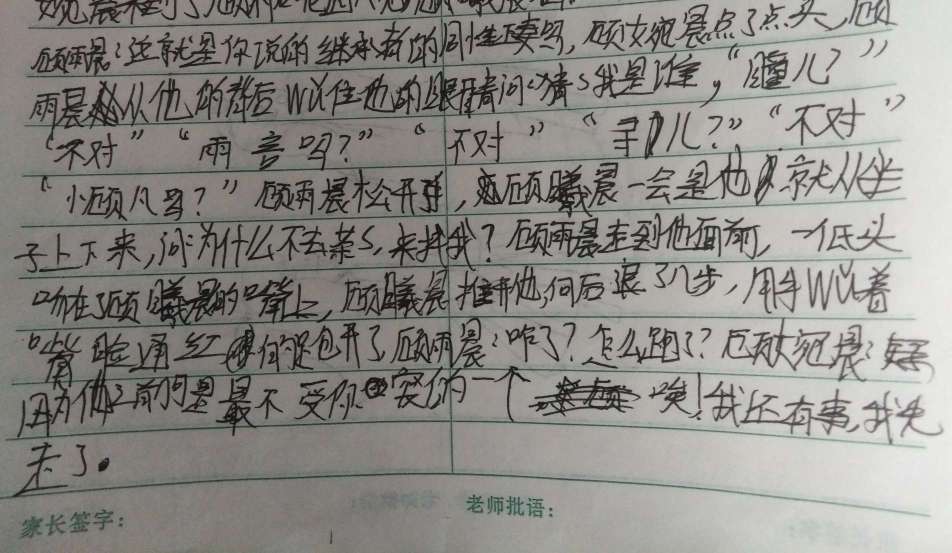 顾雨晨：这就是你说的继承者的同性妻吗，顾婉晨点了点头，顾
雨晨从他的背后WU住他的眼睛问：猜s我是谁，“瞳儿？”
“不对”“雨言吗？”“不对”“儿？”“不对”
“小顾凡吗？”顾雨晨松开手，顾曦晨一会是他就从坐
子上下来，问：为什么不去茶s，来找我？顾雨晨走到他面前，一低头
吻在了顾曦晨的嘴上，顾曦晨推开他，向后退了几步，用手WU着
嘴脸通红的跑开了，顾雨晨：咋了？怎么跑了？顾婉晨：
因为他之前的是最不受你容的一个 唉！我还有事，我先
走了。
家长签字： 老师批语：